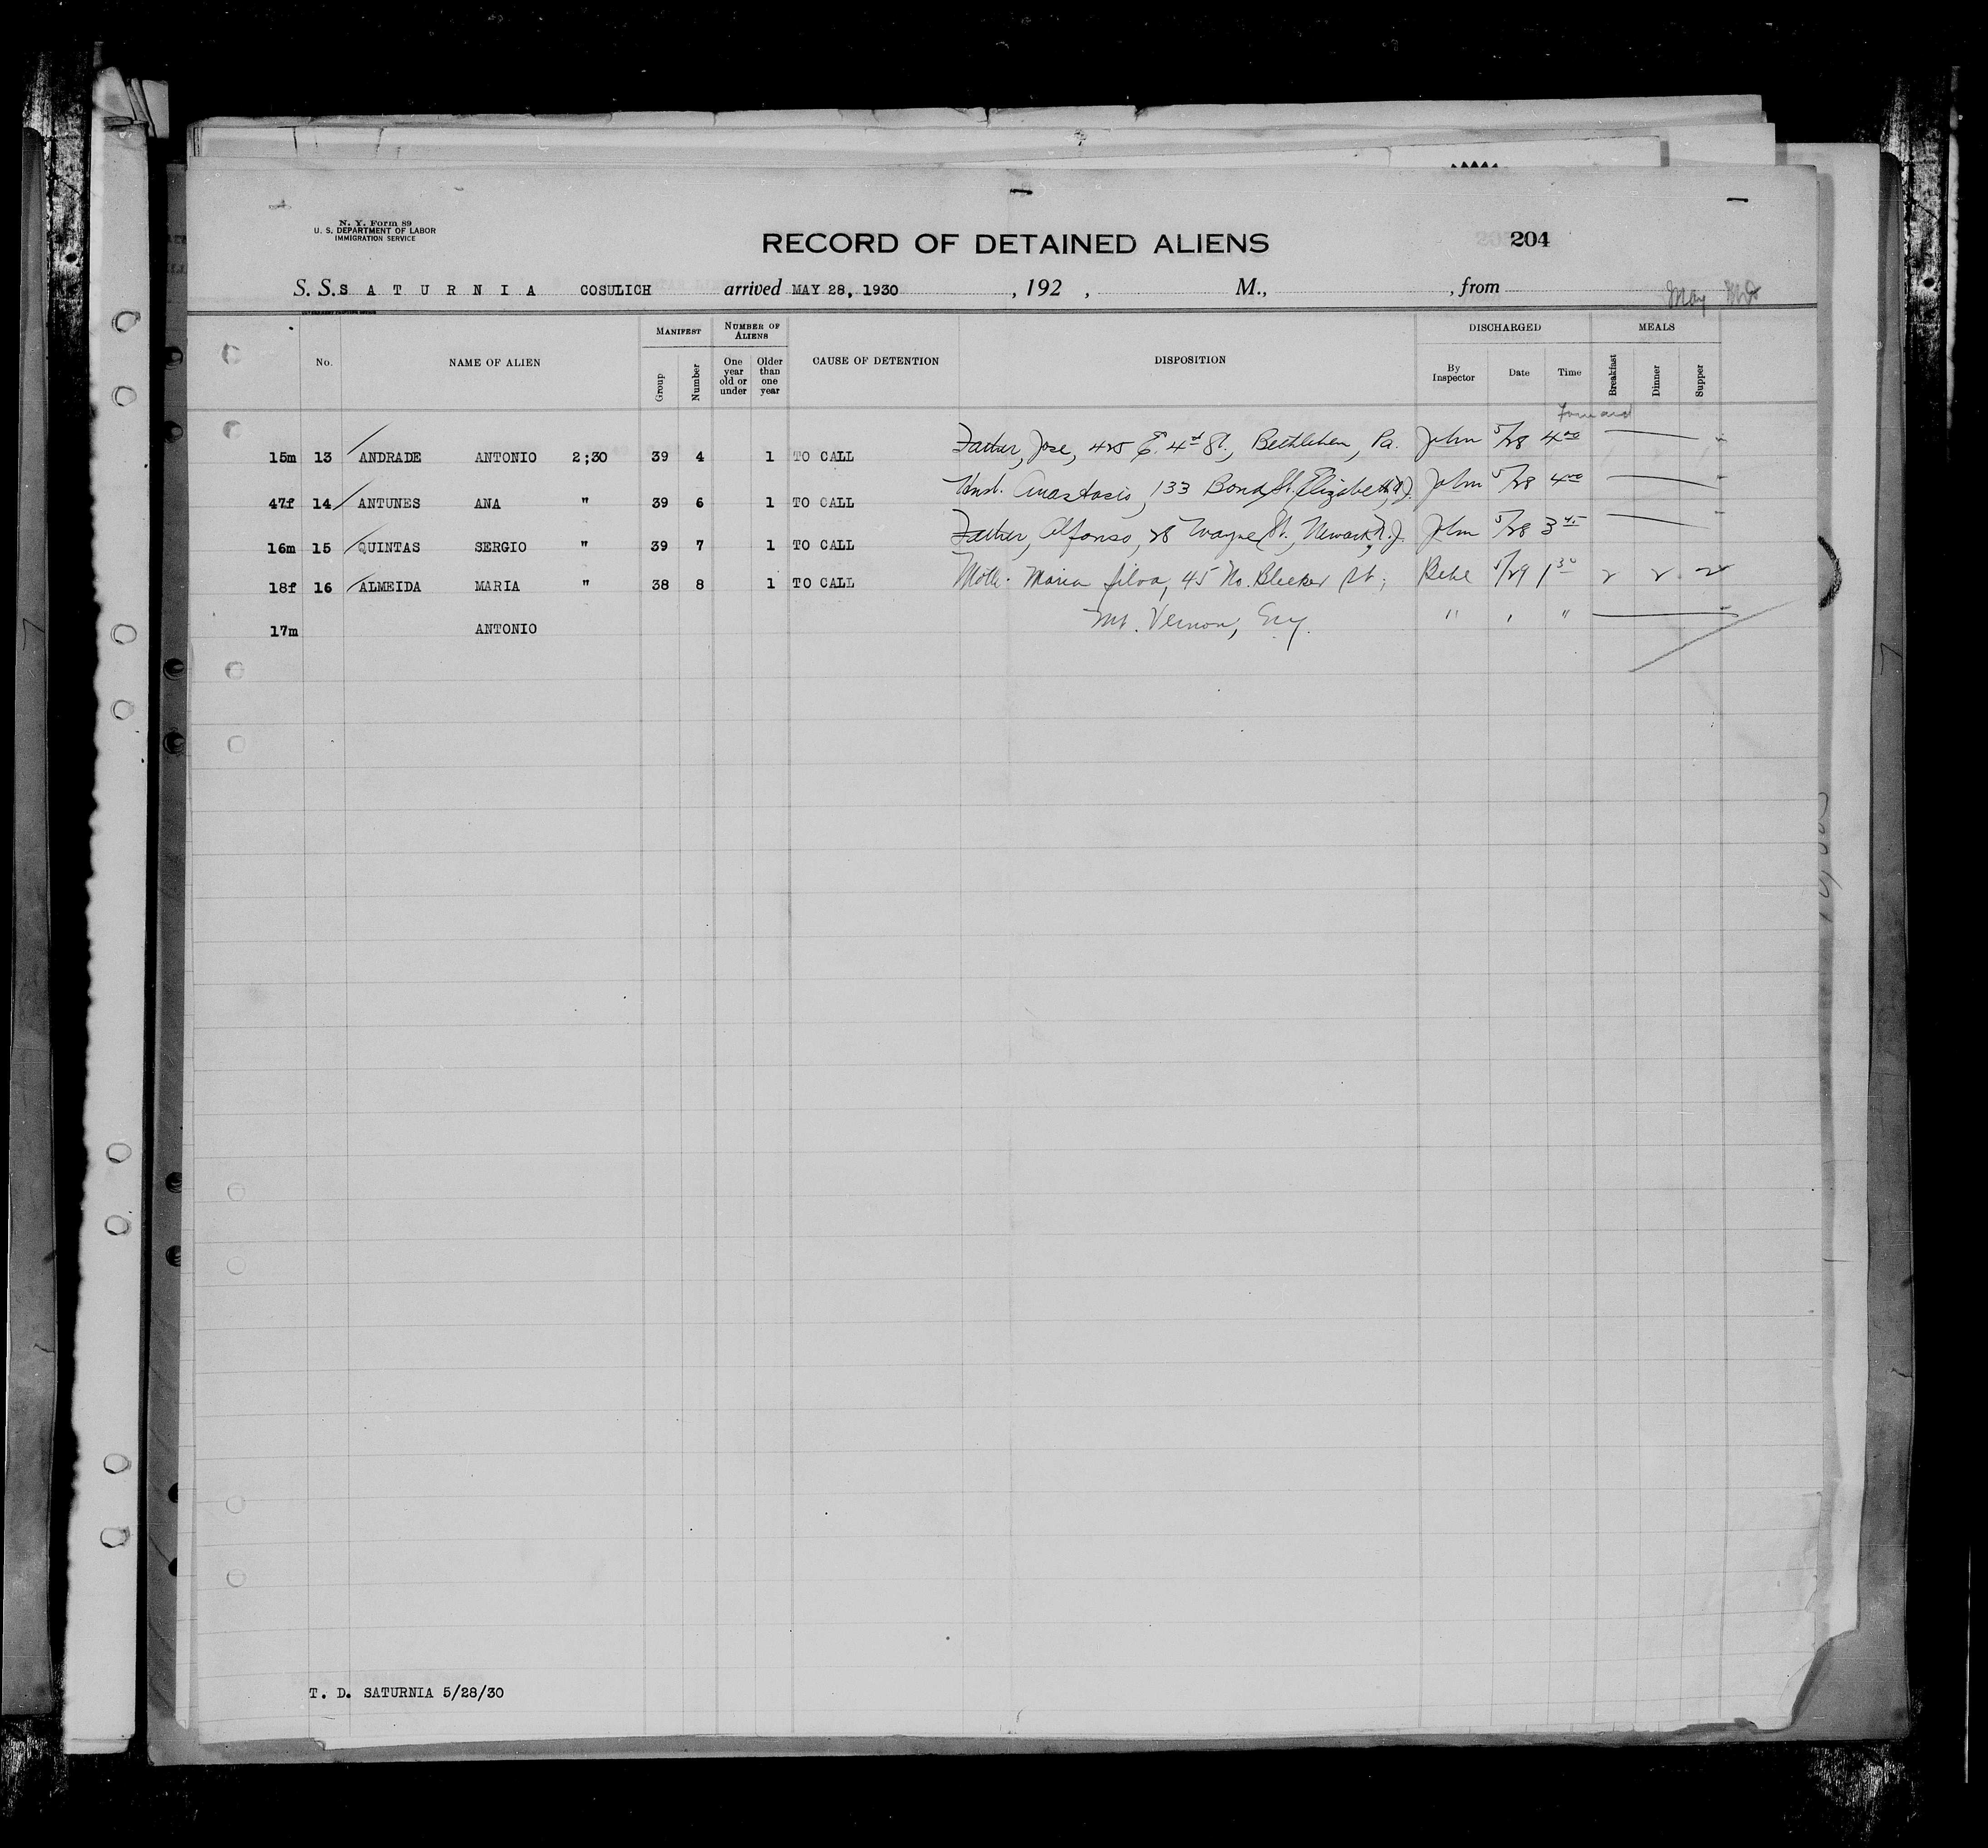 N. Y. Form 89
U. S. DEPARTMENT OF LABOR
IMMIGRATION SERVICE
RECORD OF DETAINED ALIENS
204
S. S. S A T U R N I A COSULICH arrived MAY 28, 1930 , 192 , M., , from May
No. NAME OF ALIEN MANIFEST Group Number NUMBER OF ALIENS One year old or under Older than one year CAUSE OF DETENTION DISPOSITION DISCHARGED By Inspector Date Time MEALS Breakfast Dinner Supper
15m 13 ANDRADE ANTONIO 2;30 39 4 1 TO CALL Father, Jose, 425 E. 4th St., Bethlehem, Pa. John 5/28 4 00
47f 14 ANTUNES ANA " 39 6 1 TO CALL Husb. Anastasio, 133 Bond St. Elizabeth, N.J. John 5/28 4 00
16m 15 QUINTAS SERGIO " 39 7 1 TO CALL Father, Alfonso, 28 Wayne St., Newark, N.J. John 5/28 3 45
18f 16 ALMEIDA MARIA " 38 8 1 TO CALL Moth. Maria Silva, 45 No. Bleeker St; 5/29 1 30 2 2 2
17m ANTONIO Mt. Vernon, " "
T. D. SATURNIA 5/28/30